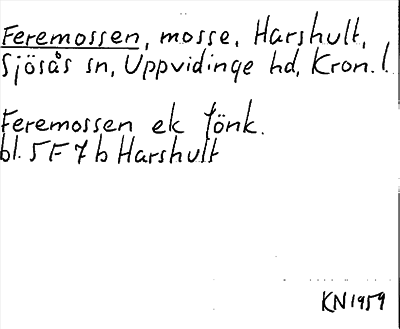 Feremossen, mosse, Harshult,
Sjösås sn, Uppvidinge hd, Kron. l.
Feremossen ek fönk.
bl. 5 F 7 b Harshult
KN 1959